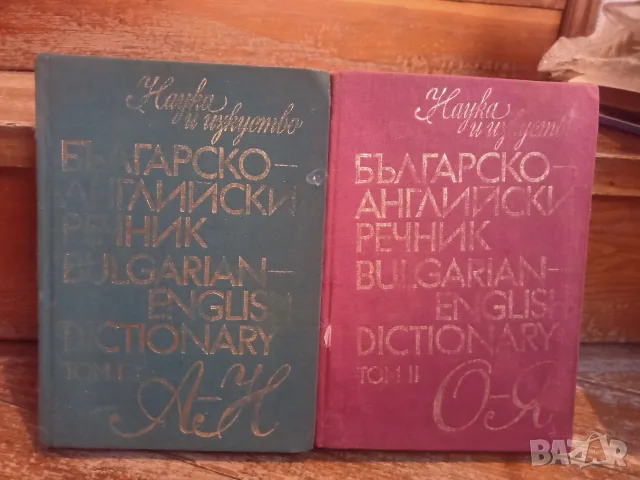 Наука
и изкуство
БЪЛГАРСКО-
АНГЛИЙСКИ
РЕЧНИК
BULGARIAN-
ENGLISH
DICTIONARY
ТОМ I
А-Н
Наука
и изкуство
БЪЛГАРСКО-
АНГЛИЙСКИ
РЕЧНИК
BULGARIAN-
ENGLISH
DICTIONARY
ТОМ II
О-Я
BAZAR